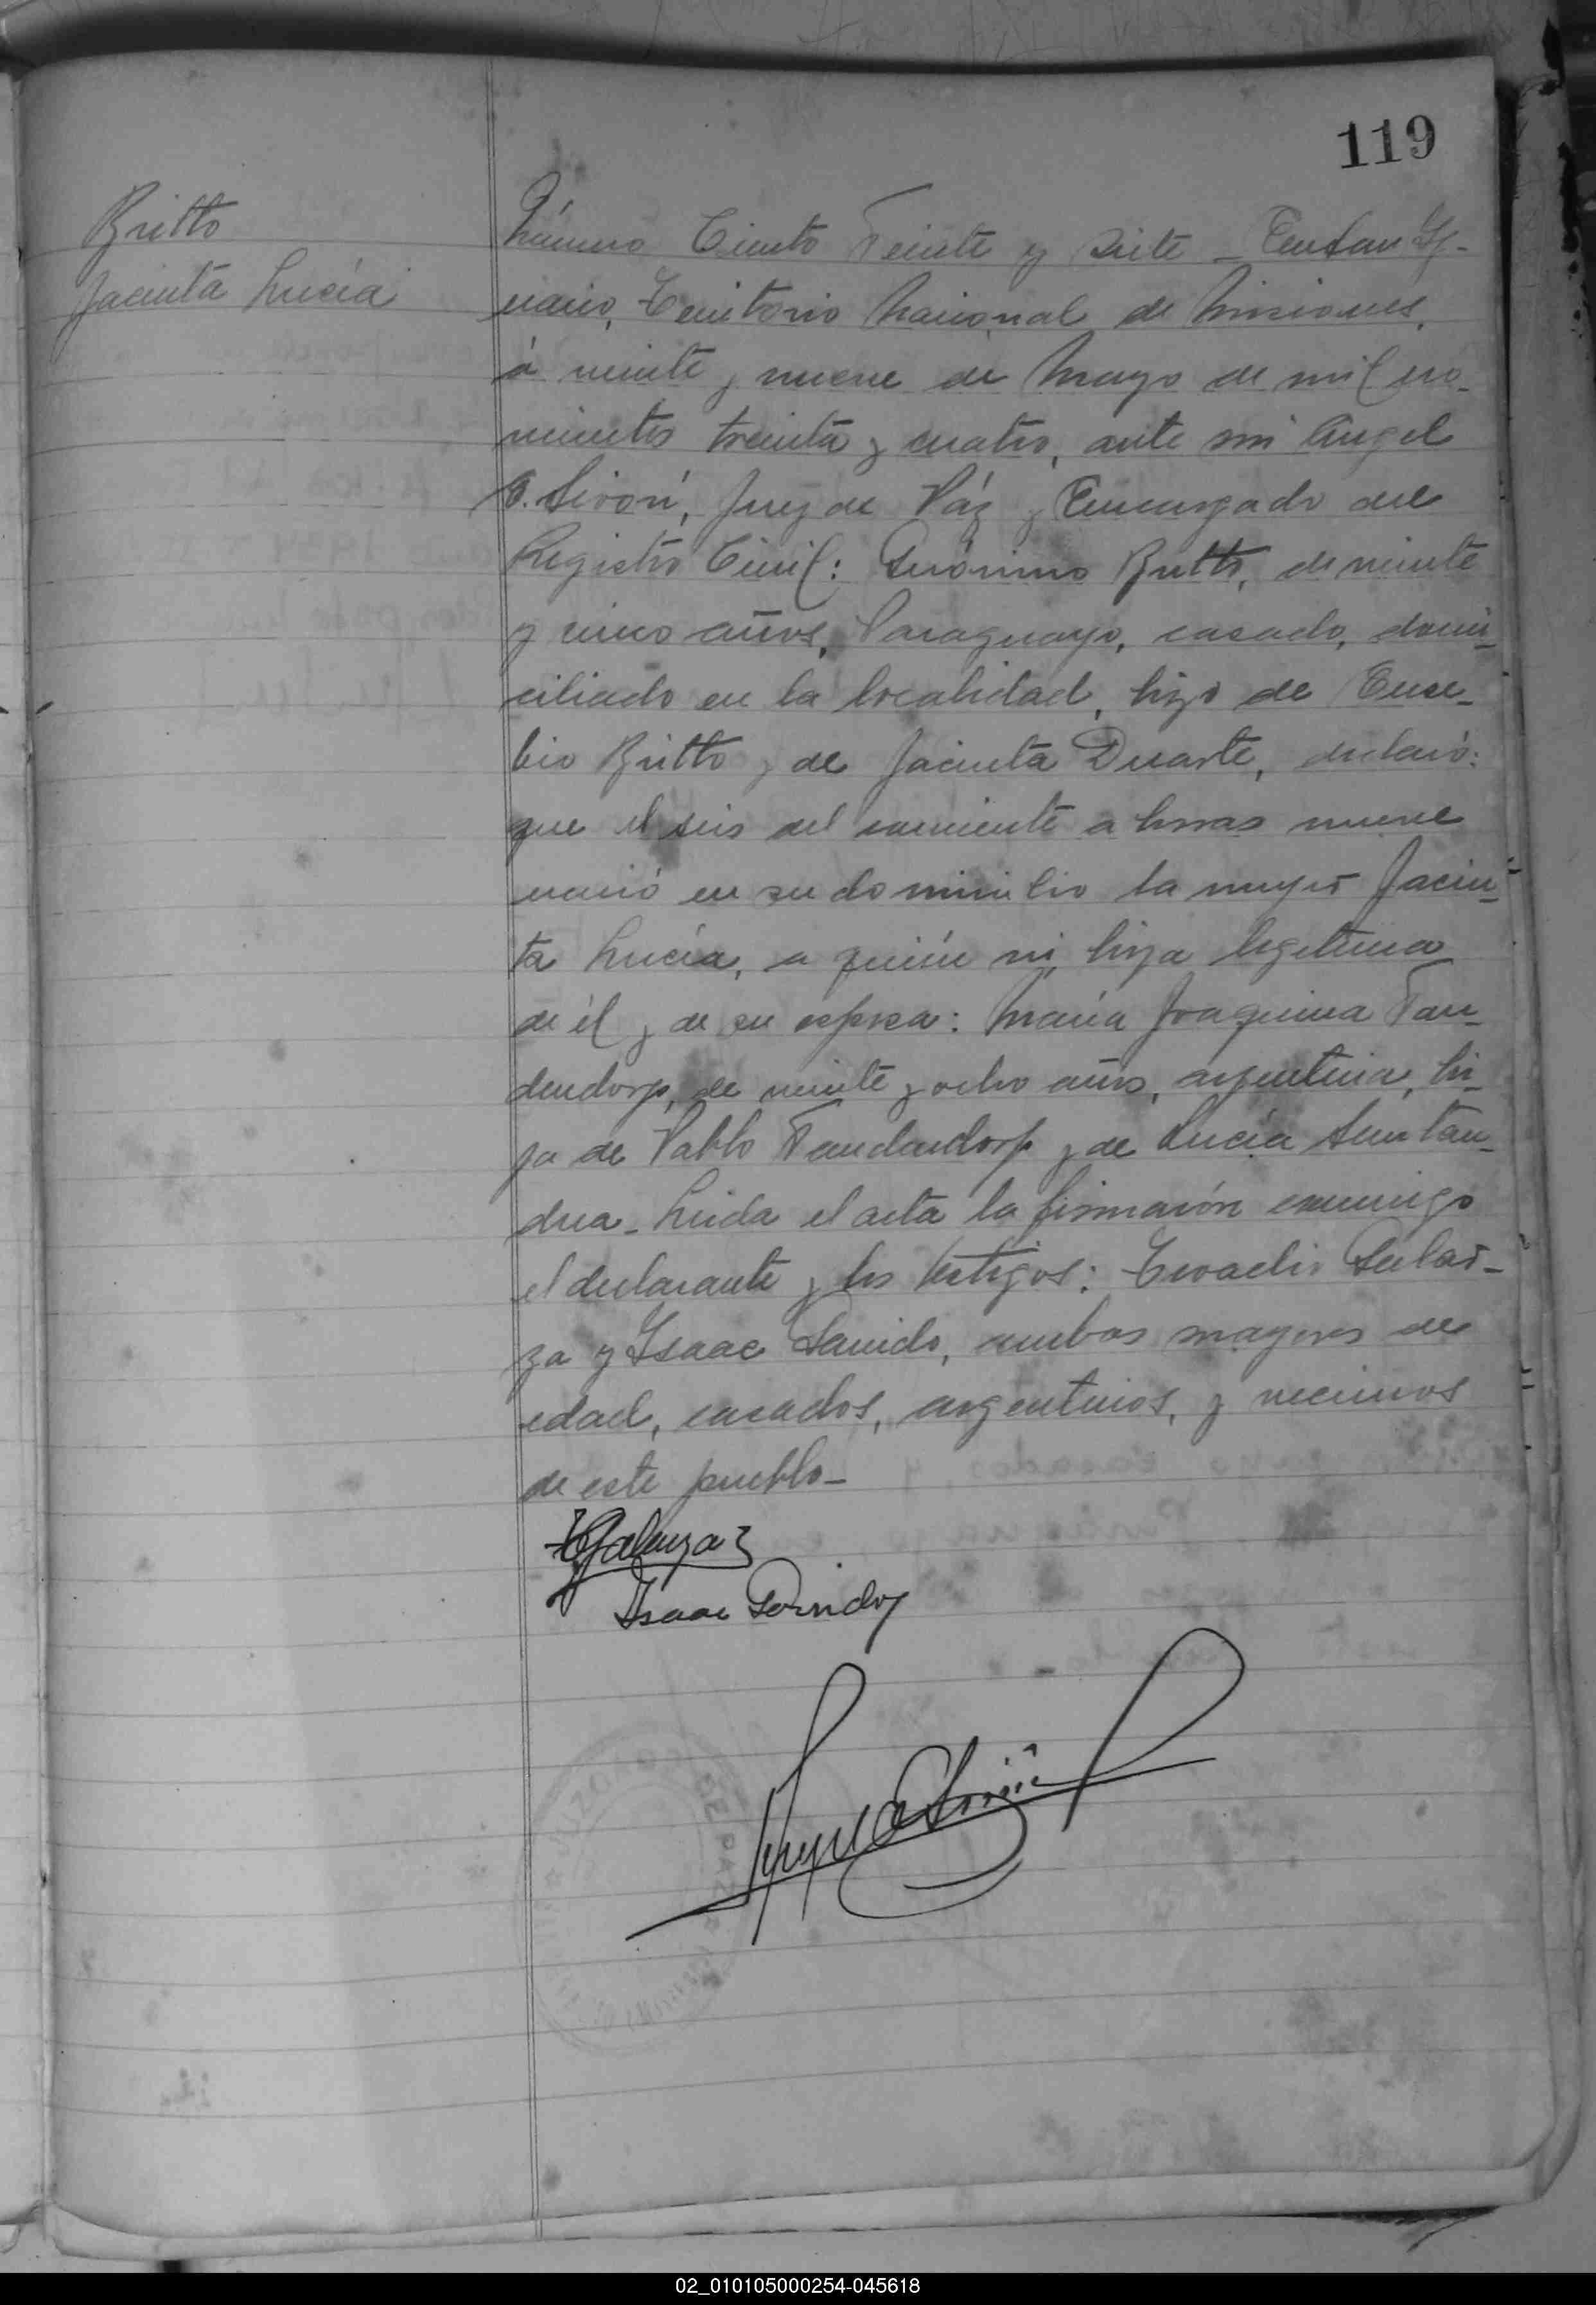 119
Britto
Jacinta Lucía
Número Ciento Veinte y siete - En San Ig-
nacio, Territorio Nacional de Misiones,
á veinte y nueve de Mayo de mil no-
vecientos treinta y cuatro, ante mi Angel
E. Sivori, Juez de Páz y Encargado del
Registro Civil: Gerónimo Britto, de veinte
y cinco años, Paraguayo, casado, domi-
ciliado en la localidad, hijo de Euse-
bio Britto y de Jacinta Duarte, declaró:
que el seis del corriente a horas nueve
nació en su domicilio la mujer Jacin-
ta Lucía, a quién vi, hija legitima
de él y de su esposa: María Joaquina Van-
dendorp, de veinte y ocho años, argentina, hi-
ja de Pablo Vandendorp y de Lucía
Leida el acta la firmarón conmigo
el declarante y los testigos: Galar-
za y Isaac ambos mayores de
edad, casados, argentinos, y vecinos
de este pueblo-
Isaac
JUZGADO DE PAZ
02_010105000254-045618